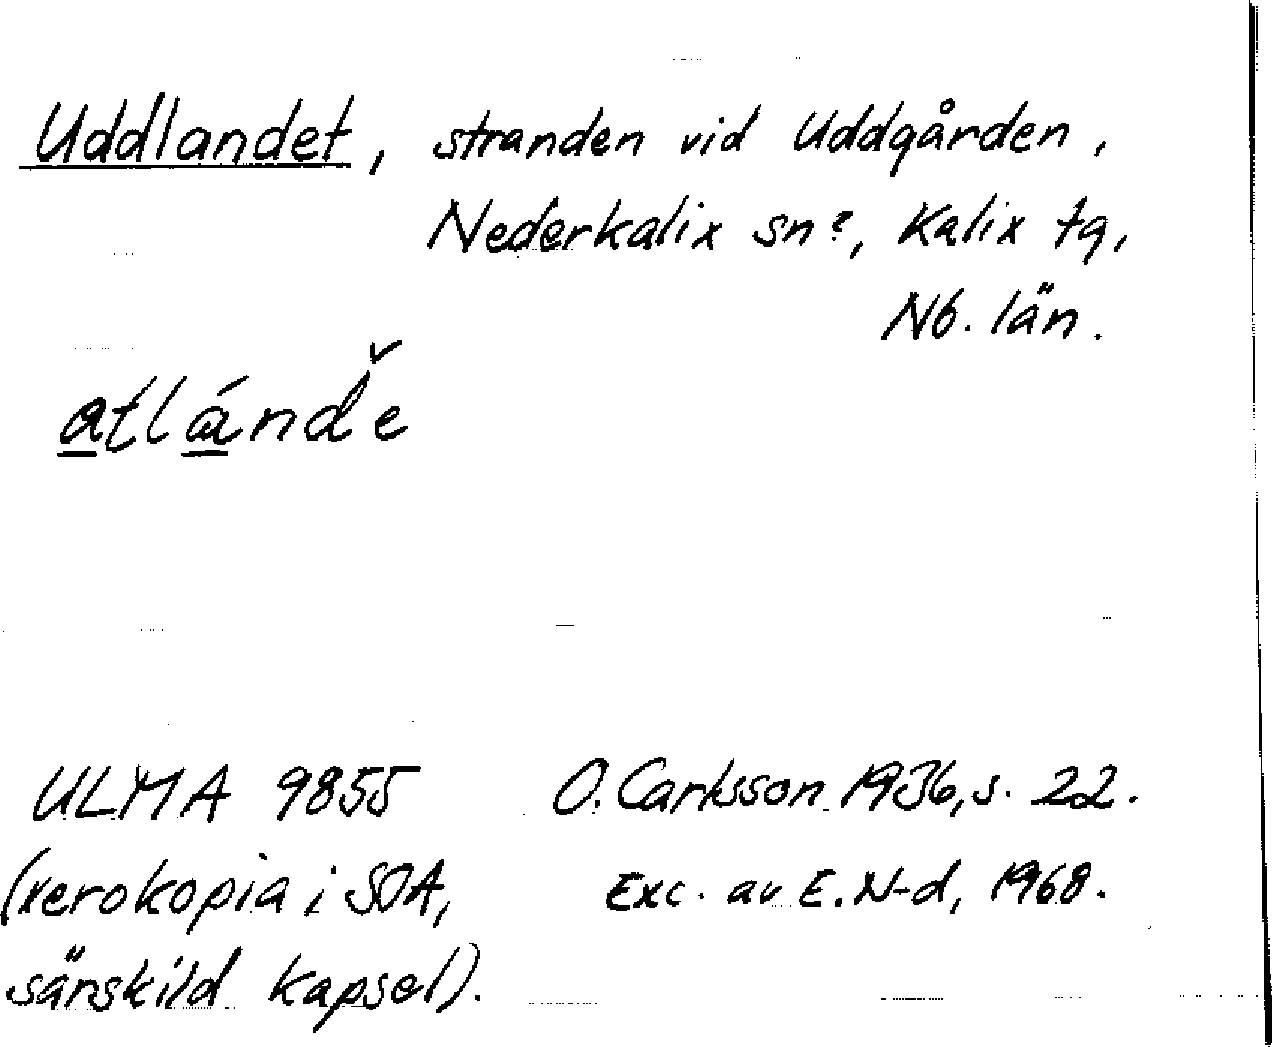 Uddlandet, stranden vid Uddgården,
Nederkalix sn?, Kalix tg,
Nb. län.
atlándě
ULMA 9855 O. Carlsson 1936, s. 22.
(xerokopia i SOA, Exc. av E. N-d, 1968.
särskild kapsel).